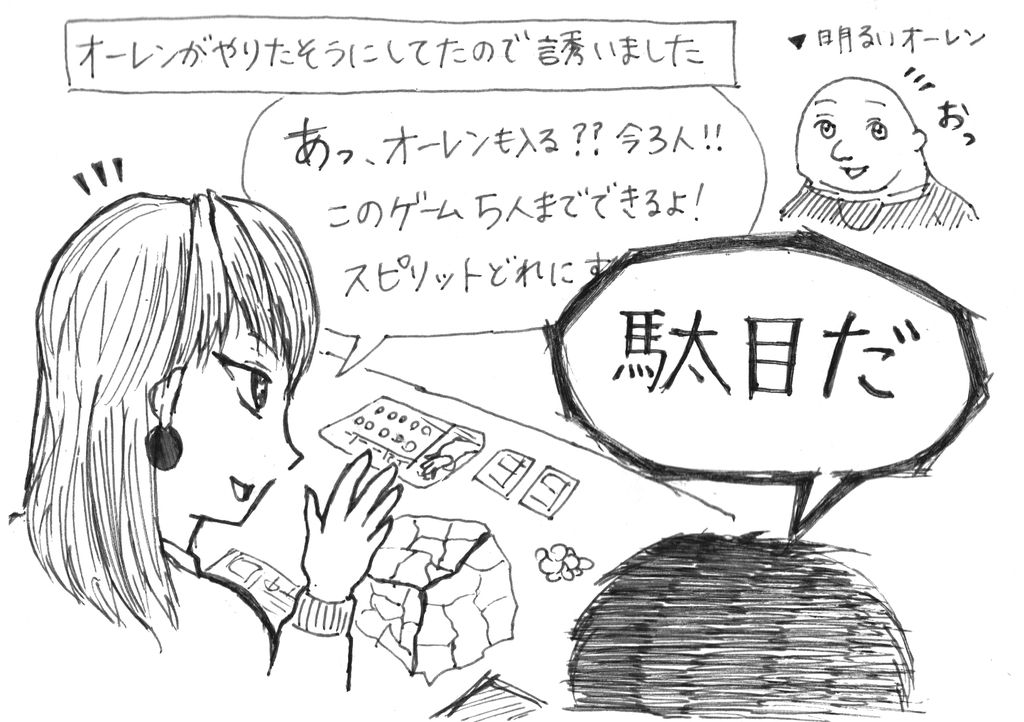 オーレンがやりたそうにしてたので誘いました
▼明るいオーレン
おっ
あっ、オーレンも入る??今3人!!
このゲーム5人までできるよ!
スピリットどれにす
駄目だ